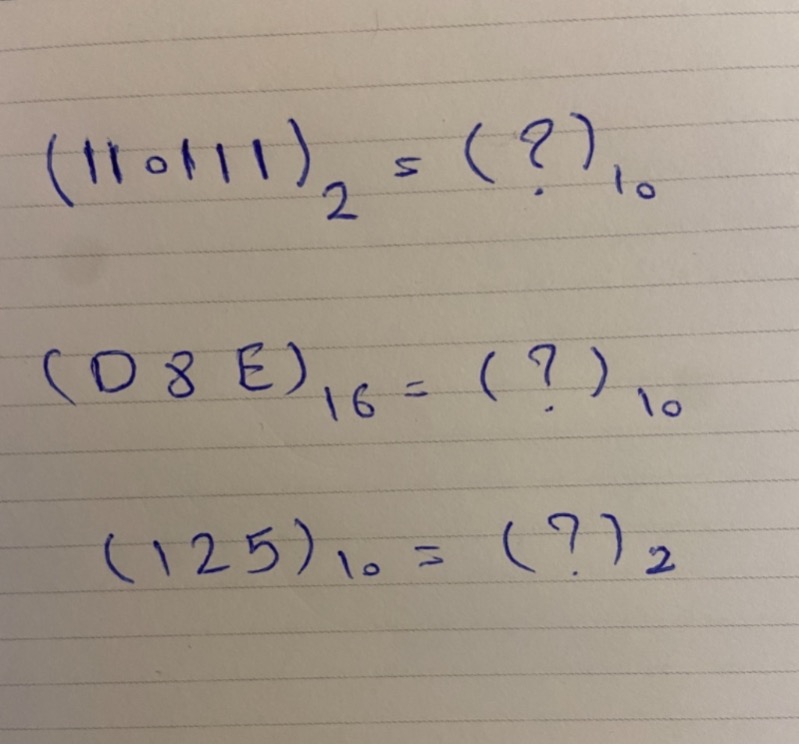 (110111)₂ = (?)₁₀
(D8E)₁₆ = (?)₁₀
(125)₁₀ = (?)₂